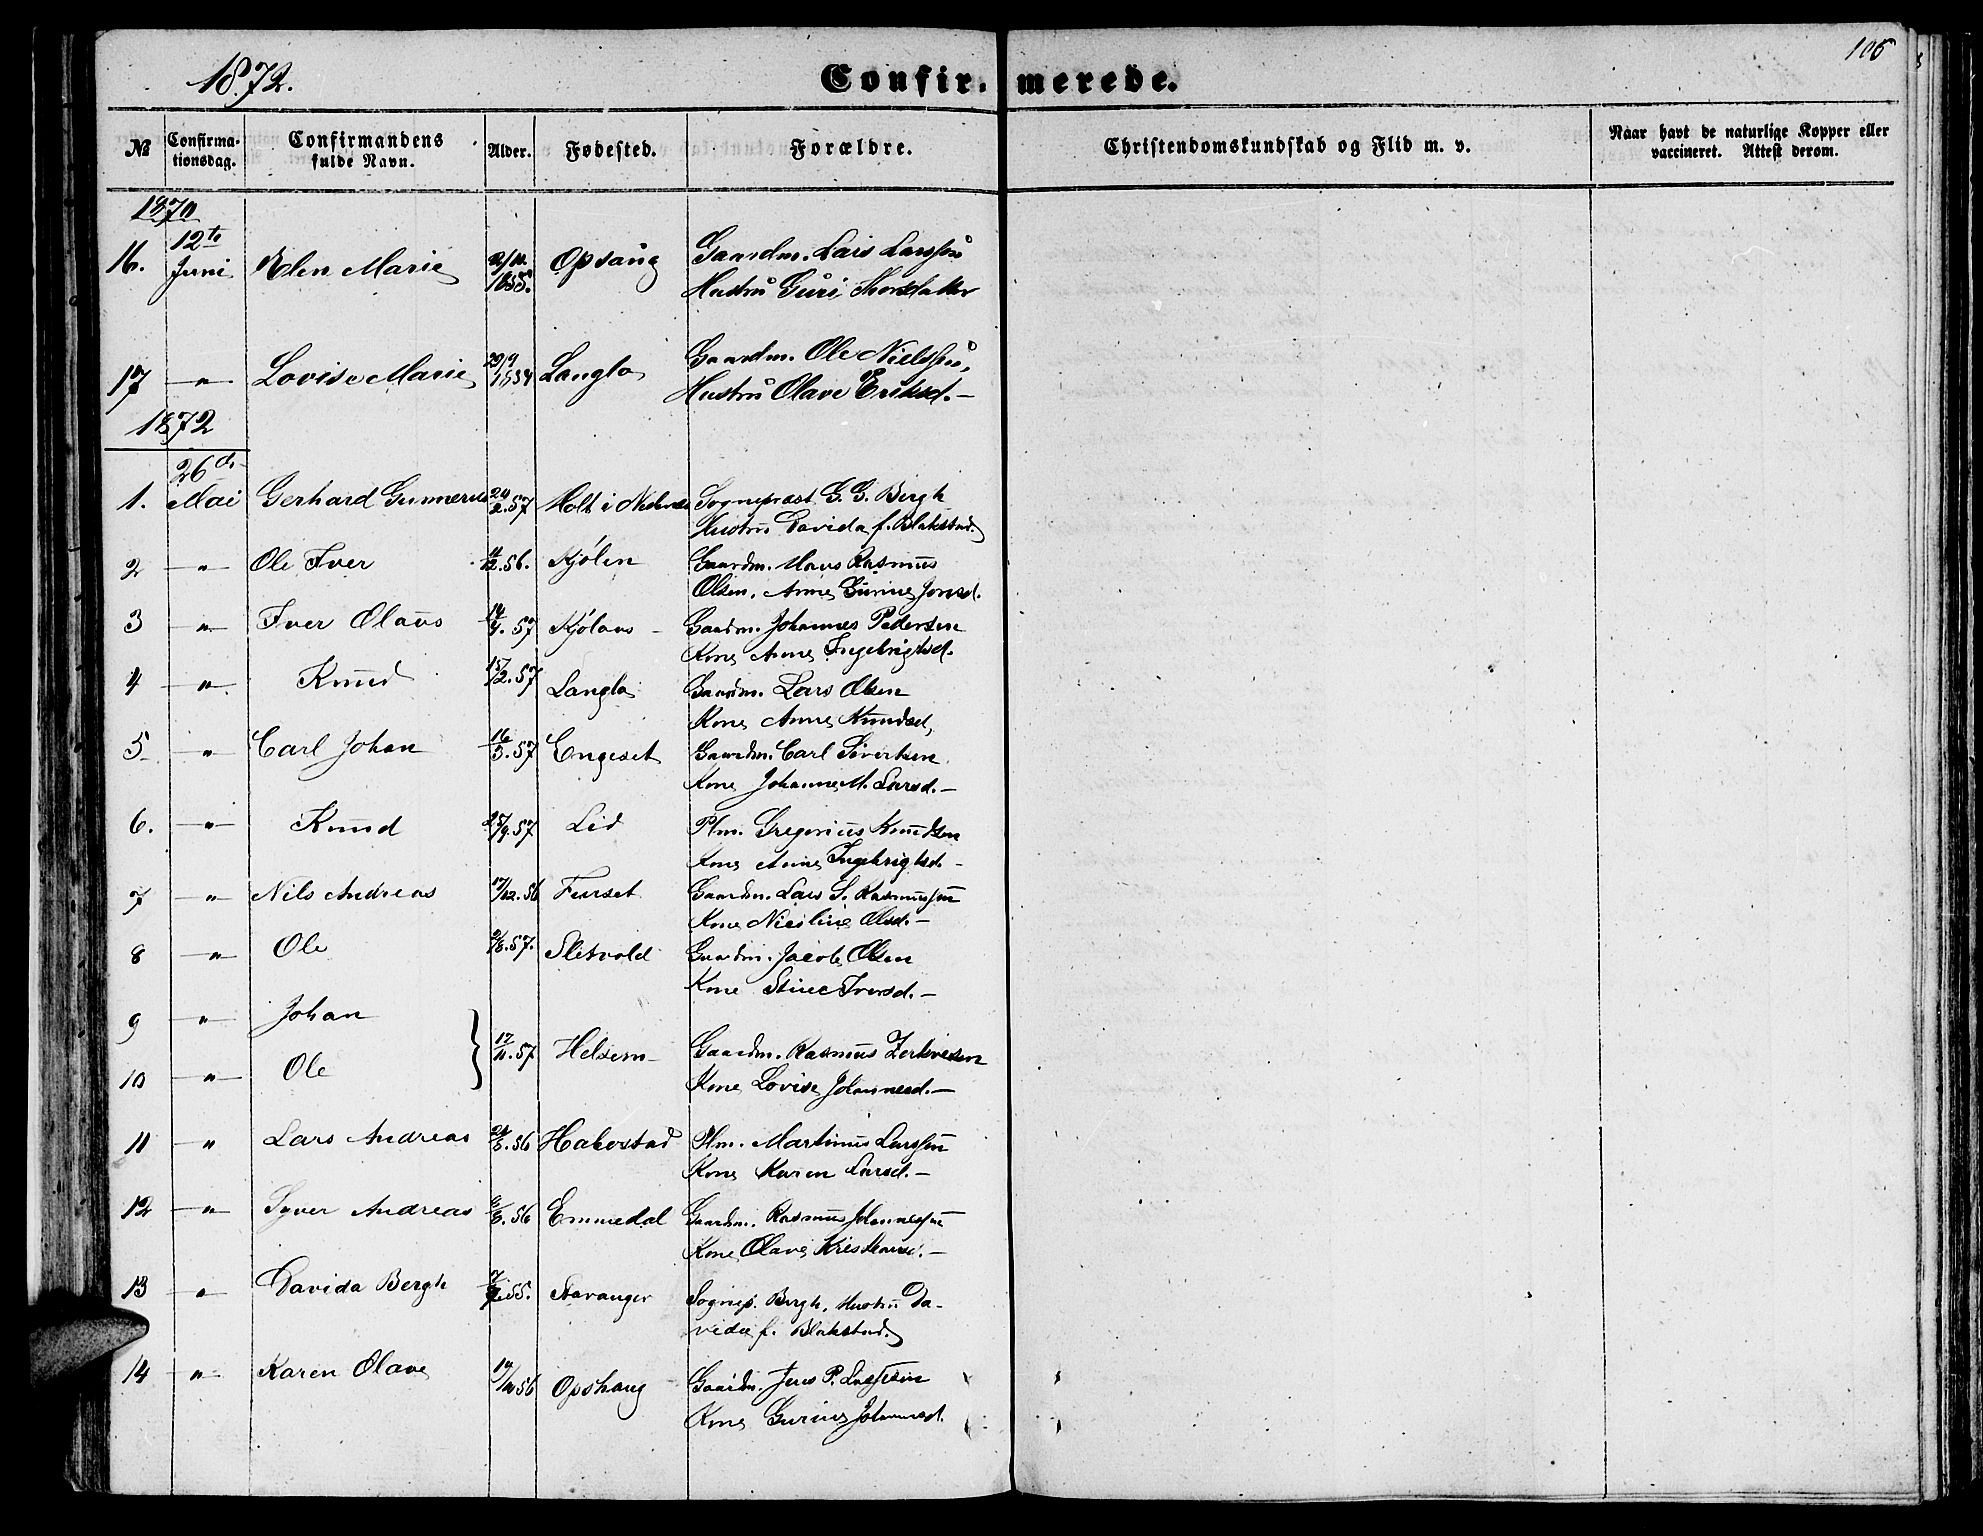 105
1872.
Confir- merede.
№ Confirma- Confirmandens Alder. Fødested. Forældre. Christendomskundskab og Flid m. v. Naar havt de naturlige Kopper eller
tionsdag. fulde Navn. vaccineret. Attest derom.
1870
12te
16. Juni Elen Marie 1855. Opsang Gaardm. Lars Larssen
Hustru Guri Thorsdatter
17 " Lovise Marie 29/9 1854 Langlo Gaardm. Ole Nielssen,
Hustru Olave Eriksd.
1872
26de
1. Mai Gerhard Gunnerus 24/2.57 Holt i Nedenes Sogneprest G. G. Bergh
Hustru Davida f. Blakstad
2 " Ole Iver .56. Kjølen Gaardm. Hans Rasmus
Olsen, Anne Gurine Jonsd.
3 " Iver Olaus 14/4.57 Kjølaas Gaardm. Johannes Pedersen
Kone Anne Ingebrigtsd.
4 " Knud 15/2.57 Langlo Gaardm. Lars Olsen
Kone Anne Knudsd.
5 " Carl Johan 16/5.57 Engeset Gaardm. Carl Sivertsen
Kone Johanne M. Larsd.
6. " Knud 25/9.57 Lid Plm. Gregorius Knudsen
Kone Anne Ingebrigtsd.
7 " Nils Andreas 17/12.56 Furset Gaardm. Lars S. Rasmussen
Kone Nicoline Olsd.
8 " Ole .57. Sletvold Gaardm. Jacob Olsen
Kone Stine Iversd.
9 " Johan
10 " Ole } 17/11.57 Helsem Gaardm. Rasmus
Kone Lovise Johannesd.
11 " Lars Andreas .56 Habostad Plm. Martinus Larssen
Kone Karen Larsd.
12 " Syver Andreas .56 Emmedal Gaardm. Rasmus Johannessen
Kone Olave Kristiansd.
13 " Davida Bergh .55. Stavanger Sognep. Bergh, Hustru Da-
vida f. Blakstad
14 " Karen Olave .56 Opshaug Gaardm. Jens P. Larssen
Kone Gurine Johannesd.